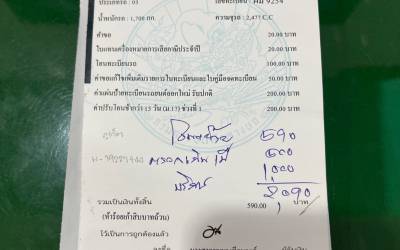 ประเภทรถ : 03 เลขทะเบียน : ผม 9254
น้ำหนักรถ : 1,700 กก. ความจุรถ : 2,477 C.C
ค่าขอ 20.00 บาท
ใบแทนเครื่องหมายการเสียภาษีประจำปี 20.00 บาท
โอนทะเบียนรถ 100.00 บาท
ค่าขอแก้ไขเพิ่มเติมรายการในทะเบียนและใบคู่มือจดทะเบียน 50.00 บาท
ค่าแผ่นป้ายทะเบียนรถยนต์ออกใหม่ รับปกติ 200.00 บาท
ค่าปรับโอนช้ากว่า 15 วัน (ม.17) ช่วงที่ 1 200.00 บาท
590
500
1,000
2,090
รวมเป็นเงินทั้งสิ้น 590.00 บาท
(ห้าร้อยเก้าสิบบาทถ้วน)
ไว้เป็นการถูกต้องแล้ว